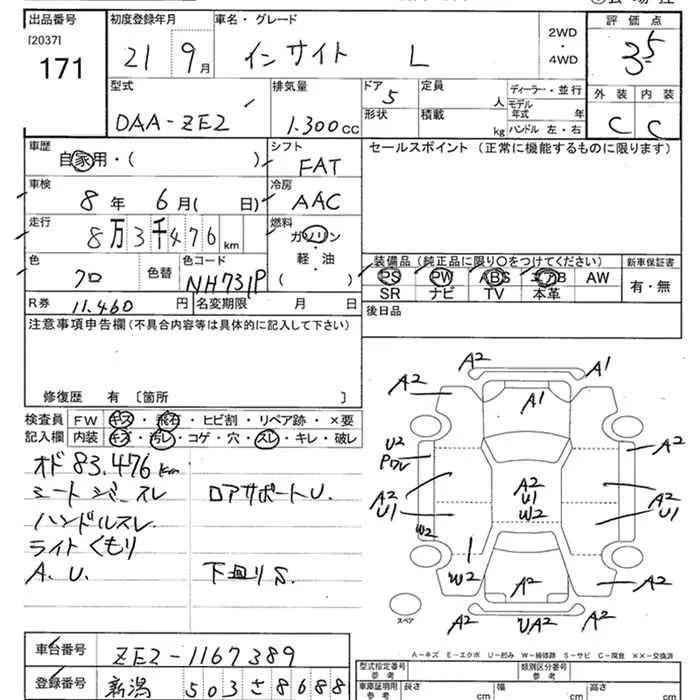 出品番号
[2037]
171
初度登録年月
21 9月
車名・グレード
インサイト L
2WD
・
4WD
評価点
3.5
型式
DAA-ZE2
排気量
1.300cc
ドア 5
形状
定員 人
積載 kg
ディーラー・並行
モデル年式 年
ハンドル 左・右
外装 内装
C C
車歴
自家用・( )
シフト
FAT
セールスポイント (正常に機能するものに限ります)
車検
8年 6月( 日)
冷房
AAC
走行
8万3千476km
燃料
ガソリン
軽・油
( )
色
クロ
色替
色コード
NH731P
装備品 (純正品に限り〇をつけてください)
新車保証書
PS PW ABS エアB AW
SR ナビ TV 本革
有・無
R券 11.460円
名変期限 月 日
後日品
注意事項申告欄 (不具合内容等は具体的に記入して下さい)
修復歴 有 〔箇所 〕
検査員記入欄
FW キズ・飛石・ヒビ割・リペア跡・×要
内装 キズ・汚レ・コゲ・穴・スレ・キレ・破レ
オド83.476km
シートジャースレ ロアサポートU.
ハンドルスレ
ライトくもり
A.U. 下廻りS.
A2 A1
A2 A1 A2
U2
Pワレ
A2
A2
U1
A2
U1
W2
A2
U1
W2
W2
A2
A2
A2 UA2 A2
スペア
A-キズ E-エクボ U-凹み W-補修跡 S-サビ C-腐食 ××-交換済
車台番号
ZE2-1167389
登録番号
新潟 503 さ 8688
型式指定番号
参考
類別区分番号
参考
車庫証明用
参考
長さ cm 幅 cm 高さ cm